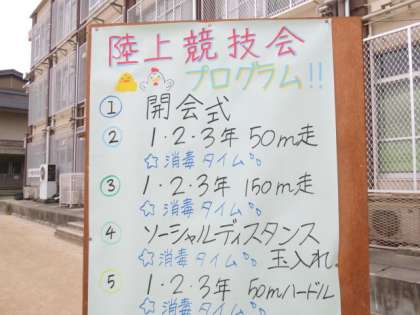 陸上競技会
プログラム!!
① 開会式
② 1・2・3年 50m走
☆消毒タイム
③ 1・2・3年 150m走
☆消毒タイム
④ ソーシャルディスタンス
☆消毒タイム 玉入れ
⑤ 1・2・3年 50mハードル
☆消毒タイム